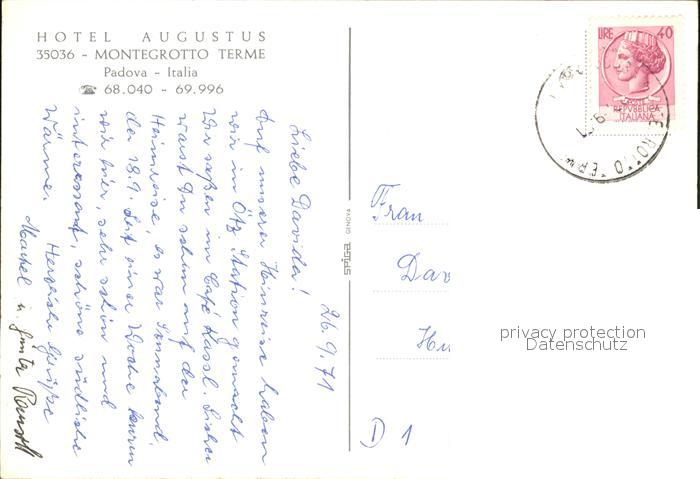 HOTEL AUGUSTUS
35036 - MONTEGROTTO TERME
Padova - Italia
☎ 68.040 - 69.996
26.9.71
Liebe Davida!
Auf unserer Hinreise haben
wir in Ötz Station gemacht
Wir saßen im Café Kassl. Sicher
warst Du schon auf der
Heimreise, es war Sonnabend,
der 18.9. Seit einer Woche
wir hier, sehr schön und
interessant, schöne südliche
Wärme. Herzliche Grüße
u. Günter
SPIGA GENOVA
LIRE 40
POSTE
REPVBBLICA
ITALIANA
ROTTO TERME
Frau
Dav
Hu
D 1
privacy protection
Datenschutz